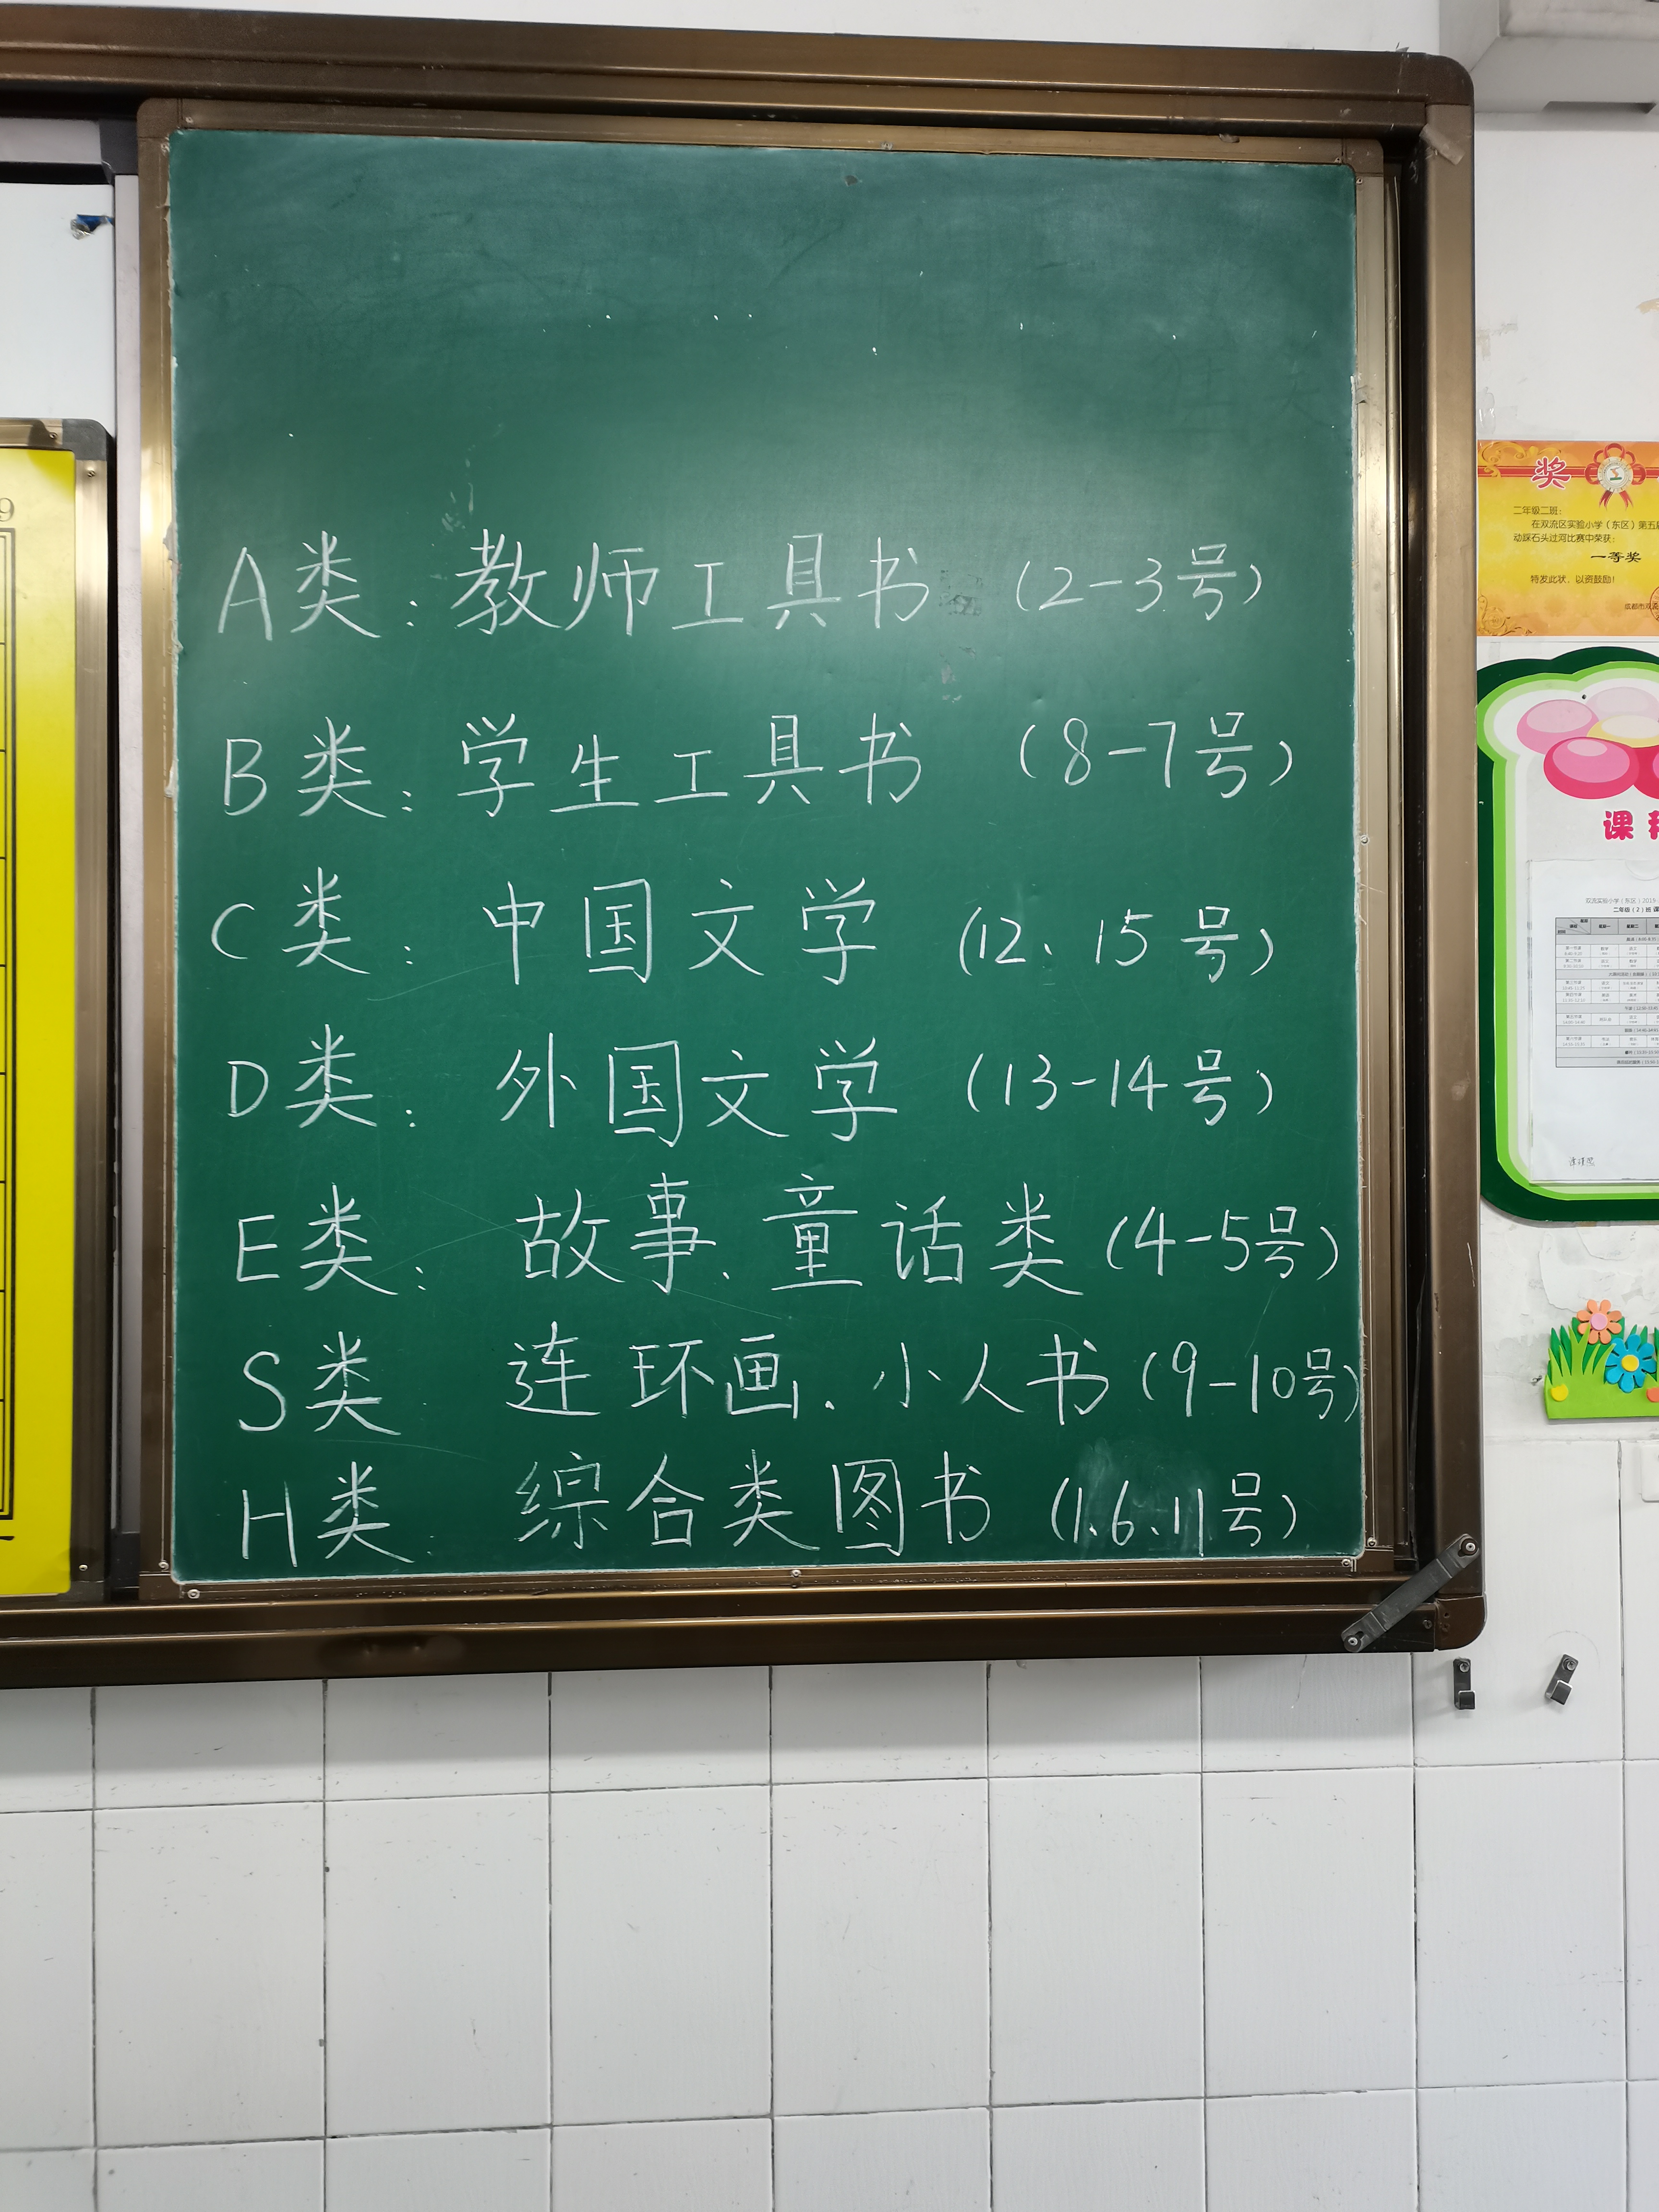 A类：教师工具书 (2-3号)
B类：学生工具书 (8-7号)
C类：中国文学 (12、15号)
D类：外国文学 (13-14号)
E类：故事、童话类 (4-5号)
S类 连环画、小人书 (9-10号)
H类：综合类图书 (1、6、11号)
9
奖
二年级二班：
在双流区实验小学（东区）第五
动踩石头过河比赛中荣获：
一等奖
特发此状，以资鼓励！
成都市双
课
双流实验小学（东区）2019
二年级（2）班 课